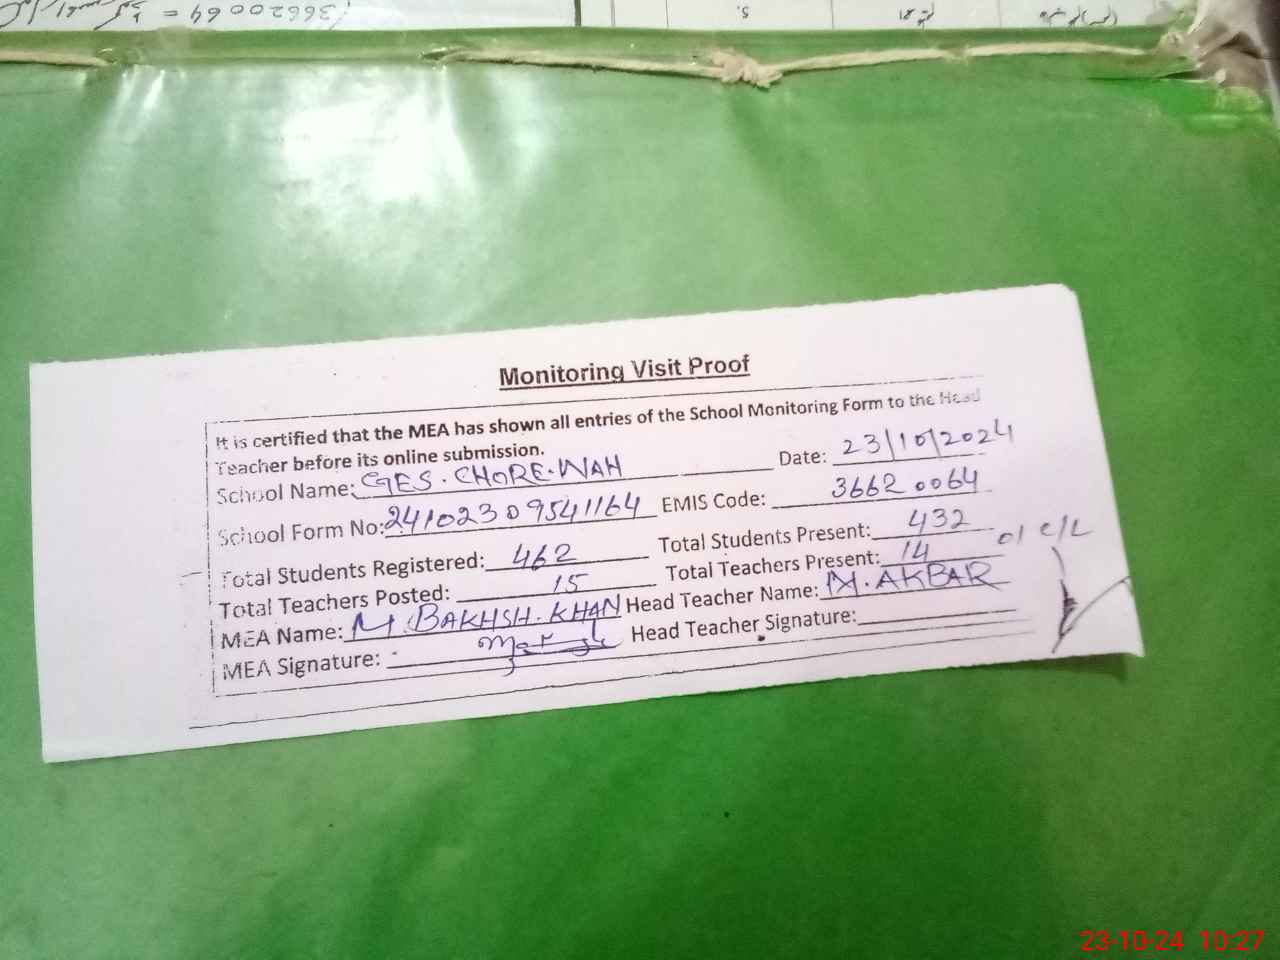 36620064 =
5.
Monitoring Visit Proof
It is certified that the MEA has shown all entries of the School Monitoring Form to the Head
Teacher before its online submission.
School Name: GES. CHORE.WAH Date: 23/10/2024
School Form No: 24102309541164 EMIS Code: 36620064
Total Students Registered: 462 Total Students Present: 432
Total Teachers Posted: 15 Total Teachers Present: 14 01 C/L
MEA Name: M. BAKHSH. KHAN Head Teacher Name: M. AKBAR
MEA Signature: Head Teacher Signature:
23-10-24 10:27